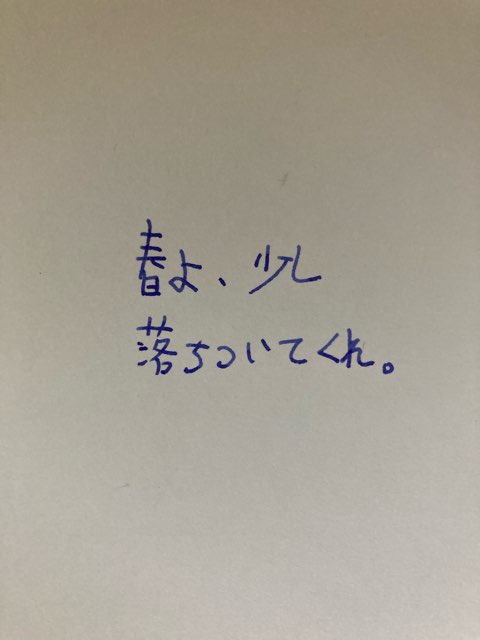 春よ、少し
落ちついてくれ。